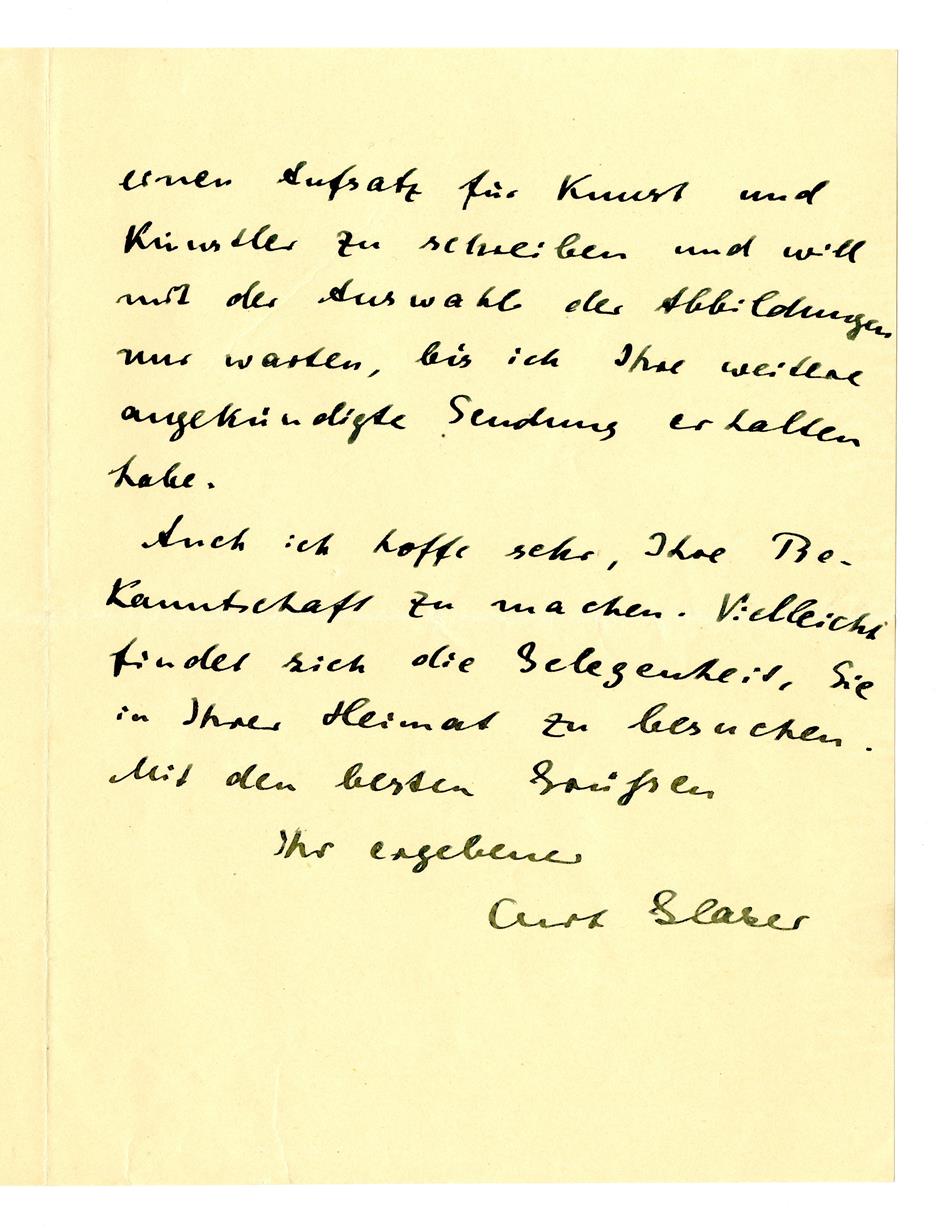 einen Aufsatz für Kunst und
Künstler zu schreiben und will
mit der Auswahl der Abbildungen
nur warten, bis ich Ihre weitere
angekündigte Sendung erhalten
habe.
Auch ich hoffe sehr, Ihre Be-
kanntschaft zu machen. Vielleicht
findet sich die Gelegenheit, Sie
in Ihrer Heimat zu besuchen.
Mit den besten Grüßen
Ihr ergebener
Curt Glaser